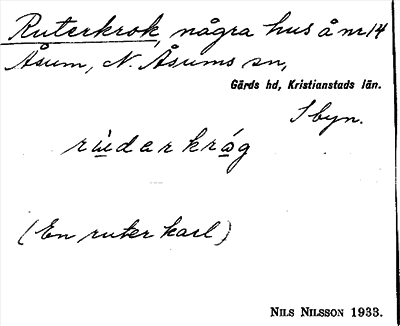 Ruterkrok, några hus å nr 14
Åsum, N. Åsums sn,
Gärds hd, Kristianstads län.
I byn.
rùdarkróg
(En ruter karl)
NILS NILSSON 1933.